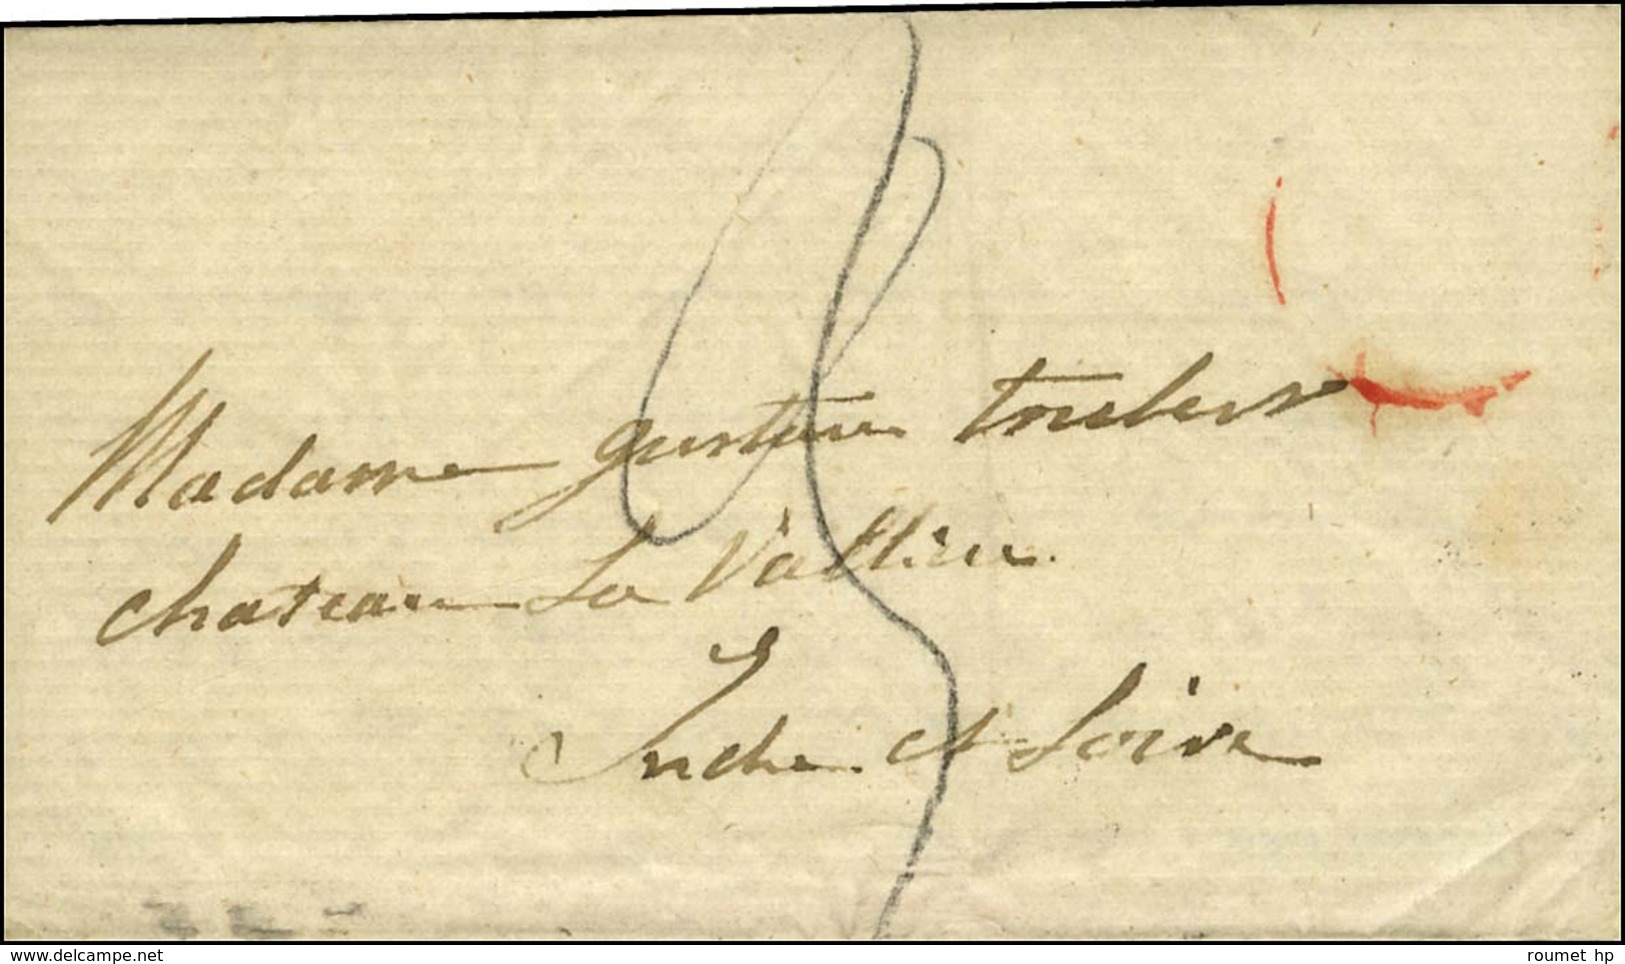 Madame gustave
chateau La Vallière
Indre et Loire
delcampe.net
roumet hp